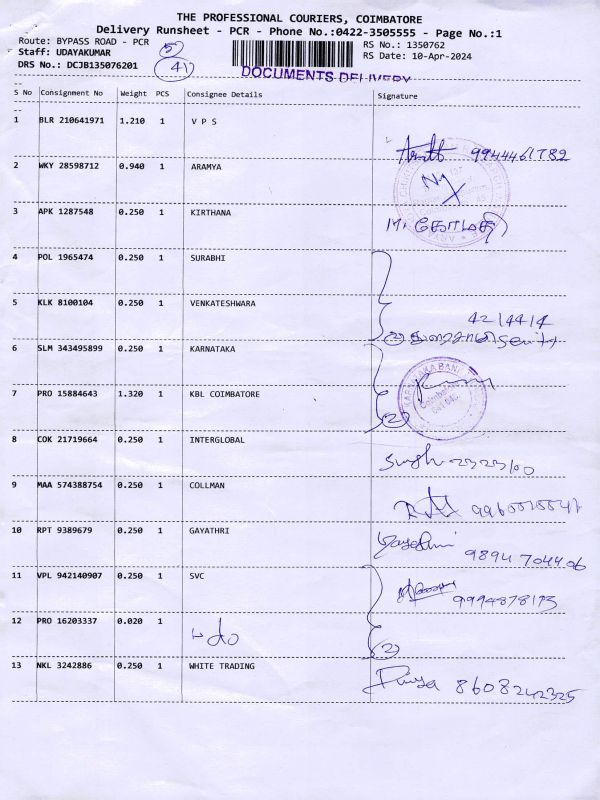 THE PROFESSIONAL COURIERS, COIMBATORE
Delivery Runsheet - PCR - Phone No.:0422-3505555 - Page No.:1
Route: BYPASS ROAD - PCR
RS No.: 1350762
Staff: UDAYAKUMAR
RS Date: 10-Apr-2024
DRS No.: DCJB135076201
41
DOCUMENTS DELIVERY
S No Consignment No Weight PCS Consignee Details Signature
1 BLR 210641971 1.210 1 V P S
2 WKY 28598712 0.940 1 ARAMYA
3 APK 1287548 0.250 1 KIRTHANA M. கோமதி
4 POL 1965474 0.250 1 SURABHI
5 KLK 8100104 0.250 1 VENKATESHWARA 4214414
2
6 SLM 343495899 0.250 1 KARNATAKA
7 PRO 15884643 1.320 1 KBL COIMBATORE 2
8 COK 21719664 0.250 1 INTERGLOBAL
9 MAA 574388754 0.250 1 COLLMAN
10 RPT 9389679 0.250 1 GAYATHRI 9894704406
11 VPL 942140907 0.250 1 SVC
12 PRO 16203337 0.020 1 do 2
13 NKL 3242886 0.250 1 WHITE TRADING Divya 8608242325